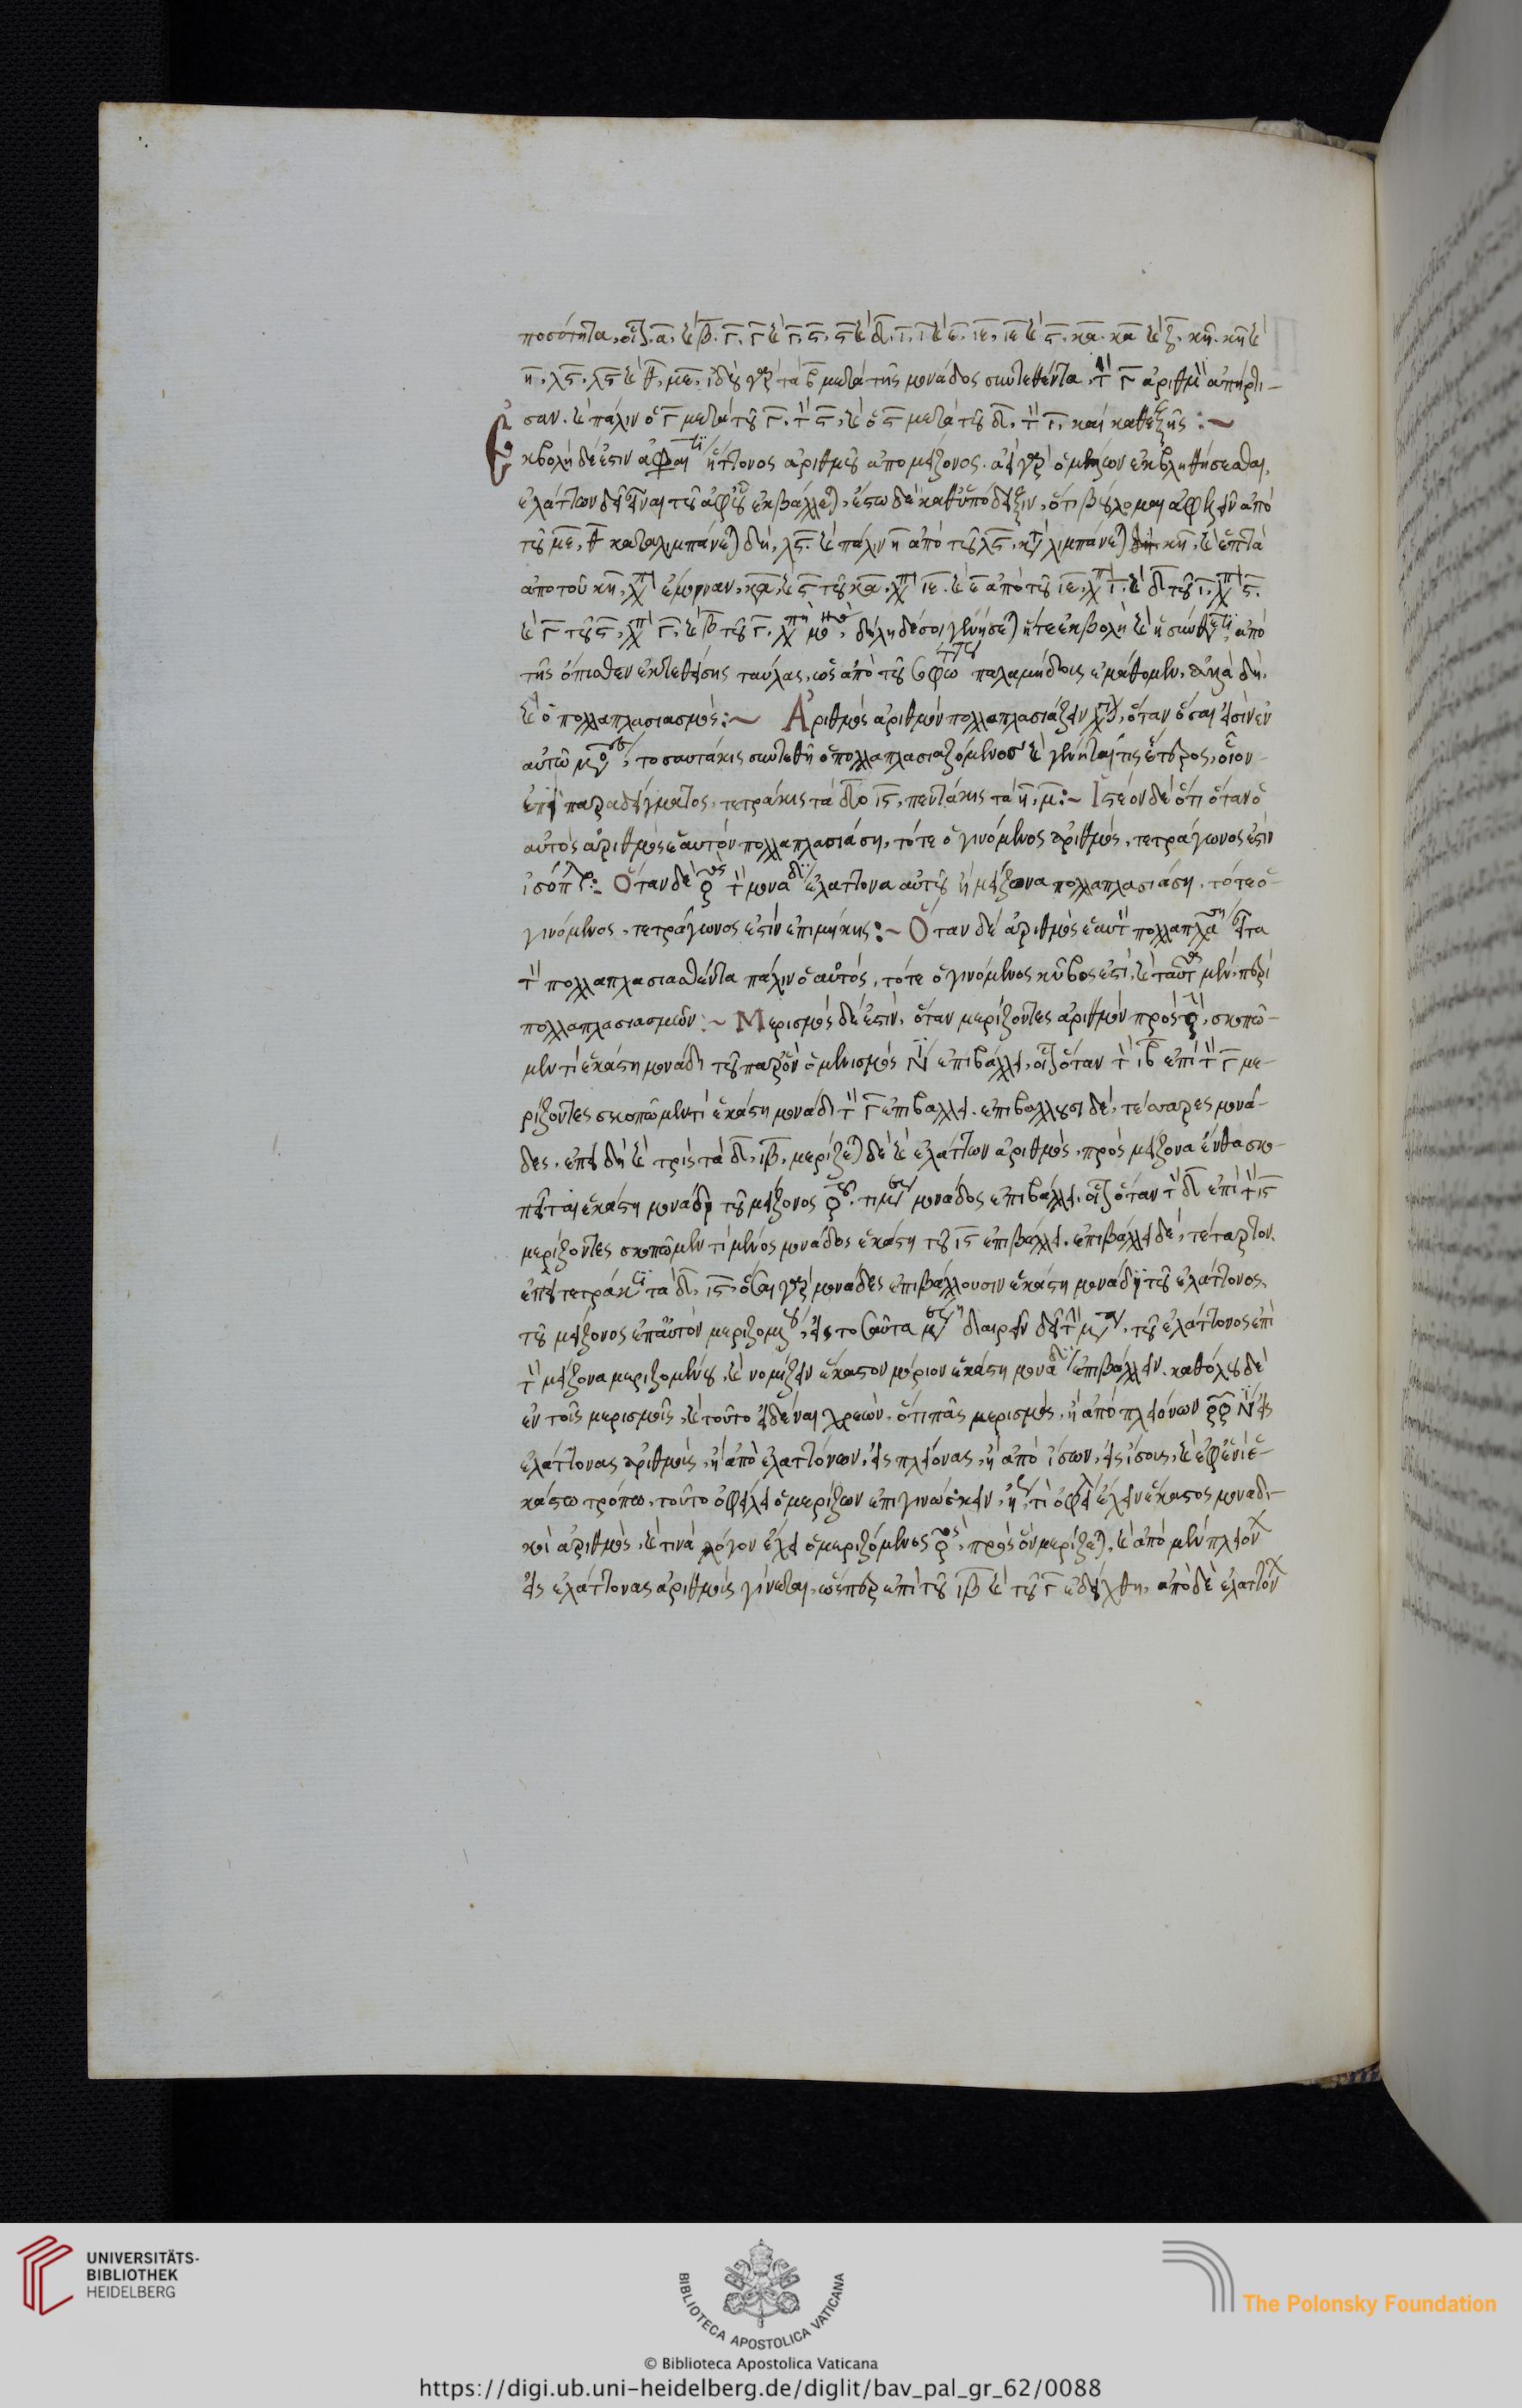 ποσότητα, οἷον α, καὶ β, γ, γ καὶ γ, ς, ς καὶ δ, ι, ι καὶ ε, ιε, ιε καὶ ς, κα, κα καὶ ζ, κη, κη καὶ
η, λς, λς καὶ θ, με, ἰδοὺ γὰρ τὰ β μετὰ τῆς μονάδος συντεθέντα, τὸν γ ἀριθμὸν ἀπήρτι-
σαν. καὶ πάλιν ὁ γ μετὰ τοῦ γ, τὸν ς, καὶ ὁ ς μετὰ τοῦ δ, τὸν ι, καὶ καθεξῆς :~
Ἐκβολὴ δέ ἐστιν ἀφαι ἥττονος ἀριθμοῦ ἀπὸ μείζονος. ἀεὶ γὰρ ὁ μείζων ἐκβληθήσεσθαι,
ἐλάττων δεῖ εἶναι τοῦ ἀφ οὗ ἐκβάλλεται, ἔστω δὲ καθ ὑπόδειξιν, ὅτι βούλομαι ἀφελεῖν ἀπὸ
τοῦ με, θ καταλιμπάνεται δὴ, λς. καὶ πάλιν η ἀπὸ τοῦ λς, καταλιμπάνεται κη, καὶ ἑπτὰ
ἀπὸ τοῦ κη, ἔμειναν, κα, καὶ ς τοῦ κα, ιε. καὶ ε ἀπὸ τοῦ ιε, ι. καὶ δ τοῦ ι, ς.
καὶ γ τοῦ ς, γ, καὶ β τοῦ γ, δήλη δέ σοι γενήσεται ἥ τε ἐκβολὴ καὶ ἡ σύνθεσις ἀπὸ
τῆς ὄπισθεν ἐκτεθείσης ταύλας, ὡς ἀπὸ τοῦ παλαμήδους ἐμάθομεν,
καὶ ὁ πολλαπλασιασμός :~ Ἀριθμὸς ἀριθμὸν πολλαπλασιάζειν ὅταν ὅσαι εἰσὶν ἐν
αὐτῷ μονάδες, τοσαυτάκις συντεθῇ ὁ πολλαπλασιαζόμενος καὶ γένηταί τις ἕτερος, οἷον
ἐπὶ παραδείγματος, τετράκις τὰ δ ις, πεντάκις τὰ η, μ :~ Ἰστέον δὲ ὅτι ὅταν ὁ
αὐτὸς ἀριθμὸς ἑαυτὸν πολλαπλασιάσῃ, τότε ὁ γινόμενος ἀριθμὸς, τετράγωνός ἐστιν
ἰσόπλ :~ Ὅταν δὲ ἀριθμὸς τὸν μονάδι ἐλάττονα αὐτοῦ ἢ μείζονα πολλαπλασιάσῃ, τότε ὁ
γινόμενος, τετράγωνός ἐστιν ἐπιμήκης :~ Ὅταν δὲ ἀριθμὸς ἑαυτὸν πολλαπλασιάσῃ εἶτα
τὸν πολλαπλασιασθέντα πάλιν ὁ αὐτός, τότε ὁ γινόμενος κύβος ἐστί, καὶ ταῦτα μὲν, περὶ
πολλαπλασιασμῶν :~ Μερισμὸς δέ ἐστιν, ὅταν μερίζοντες ἀριθμὸν πρὸς ἀριθμόν, σκοπῶ-
μεν τί ἑκάστῃ μονάδι τοῦ παρ ὃν ὁ μερισμός ἐπιβάλλει, οἷον ὅταν τὸν ιβ ἐπὶ τὸν γ με-
ρίζοντες σκοπῶμεν τί ἑκάστῃ μονάδι τὸν γ ἐπιβάλλει. ἐπιβάλλουσι δὲ, τέσσαρες μονά-
δες, ἐπειδὴ καὶ τρὶς τὰ δ, ιβ, μερίζεται δὲ καὶ ἐλάττων ἀριθμὸς, πρὸς μείζονα ἔνθα σκο-
πεῖται ἑκάστῃ μονάδι τοῦ μείζονος ἀριθμοῦ, τί μέρος μονάδος ἐπιβάλλει, οἷον ὅταν τὸν δ ἐπὶ τὸν ις
μερίζοντες σκοπῶμεν τί μένος μονάδος ἑκάστῃ τοῦ ις ἐπιβάλλει. ἐπιβάλλει δὲ, τέταρτον,
ἐπεὶ τετράκις τὰ δ, ις, ὅσαι γὰρ μονάδες ἐπιβάλλουσιν ἑκάστῃ μονάδι τοῦ ἐλάττονος,
τοῦ μείζονος ἐπ αὐτὸν μεριζομένου, εἰς τοσαῦτα μέρη διαιρεῖν δεῖ τὴν μονάδα, τοῦ ἐλάττονος ἐπὶ
τὸν μείζονα μεριζομένου, καὶ νομίζειν ἕκαστον μόριον ἑκάστῃ μονάδι ἐπιβάλλειν. καθόλου δὲ
ἐν τοῖς μερισμοῖς, καὶ τοῦτο εἰδέναι χρεών, ὅτι πᾶς μερισμὸς, ἢ ἀπὸ πλειόνων ἀριθμῶν εἰς
ἐλάττονας ἀριθμοὺς, ἢ ἀπὸ ἐλαττόνων, εἰς πλείονας, ἢ ἀπὸ ἴσων, εἰς ἴσους, καὶ ἐφ ἑνὶ ἑ-
κάστῳ τρόπῳ, τοῦτο ὀφείλει ὁ μερίζων ἐπιγινώσκειν, ἤγουν, τί ὀφείλει ἔχειν ἕκαστος μοναδι-
κὸς ἀριθμὸς, καὶ τίνα λόγον ἔχει ὁ μεριζόμενος ἀριθμὸς, πρὸς ὃν μερίζεται, καὶ ἀπὸ μὲν πλειόνων
εἰς ἐλάττονας ἀριθμοὺς γίνεται, ὥσπερ ἐπὶ τοῦ ιβ καὶ τοῦ γ ἐδείχθη, ἀπὸ δὲ ἐλαττόνων
UNIVERSITÄTS-
BIBLIOTHEK
HEIDELBERG
BIBLIOTECA APOSTOLICA VATICANA
The Polonsky Foundation
© Biblioteca Apostolica Vaticana
https://digi.ub.uni-heidelberg.de/diglit/bav_pal_gr_62/0088